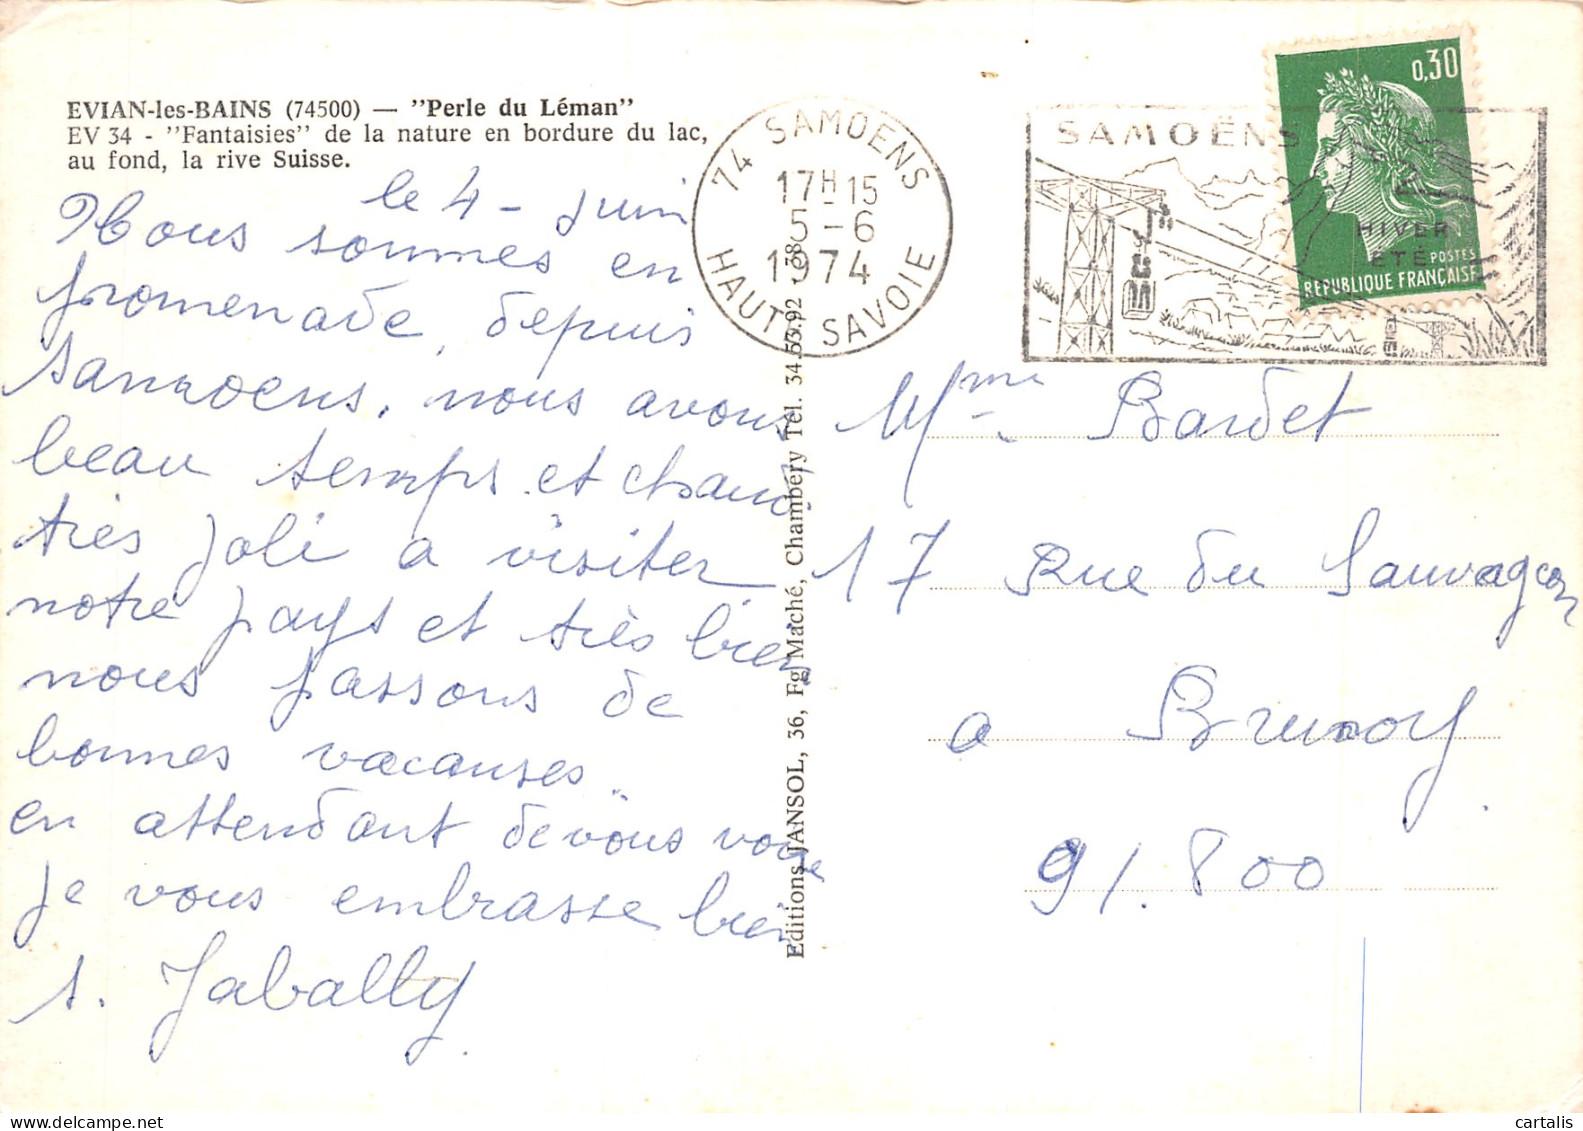 EVIAN-les-BAINS (74500) — "Perle du Léman"
EV 34 - "Fantaisies" de la nature en bordure du lac,
au fond, la rive Suisse.
le 4 - juin
Nous sommes en
promenade, depuis
Samoens, nous avons
beau temps et chaud.
très joli a visiter
notre pays et très bien
nous passons de
bonnes vacanses..
en attendant de vous voire
Je vous embrasse bien
s. Jabally
Editions JANSOL, 36, Fg Maché, Chambéry Tél. 34.53.92
74 SAMOENS
17H15
5-6
1974
HAUTE SAVOIE
SAMOËNS
HIVER
ÉTÉ
0,30
POSTES
REPUBLIQUE FRANÇAISE
Mme Bardet
17 Rue du Sauvageon
a Brunoy
91.800
cartalis